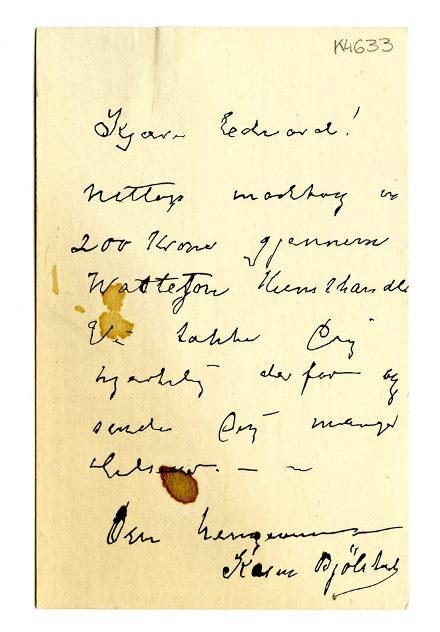 K4633
Kjære Edvard!
Nettop modtog vi
200 Kroner gjennem
Kunsthandle
Vi takke Dig
hjertelig derfor og
sende Dig mange
Helsener. — ~
Din hengivne
Karen Bjölstad